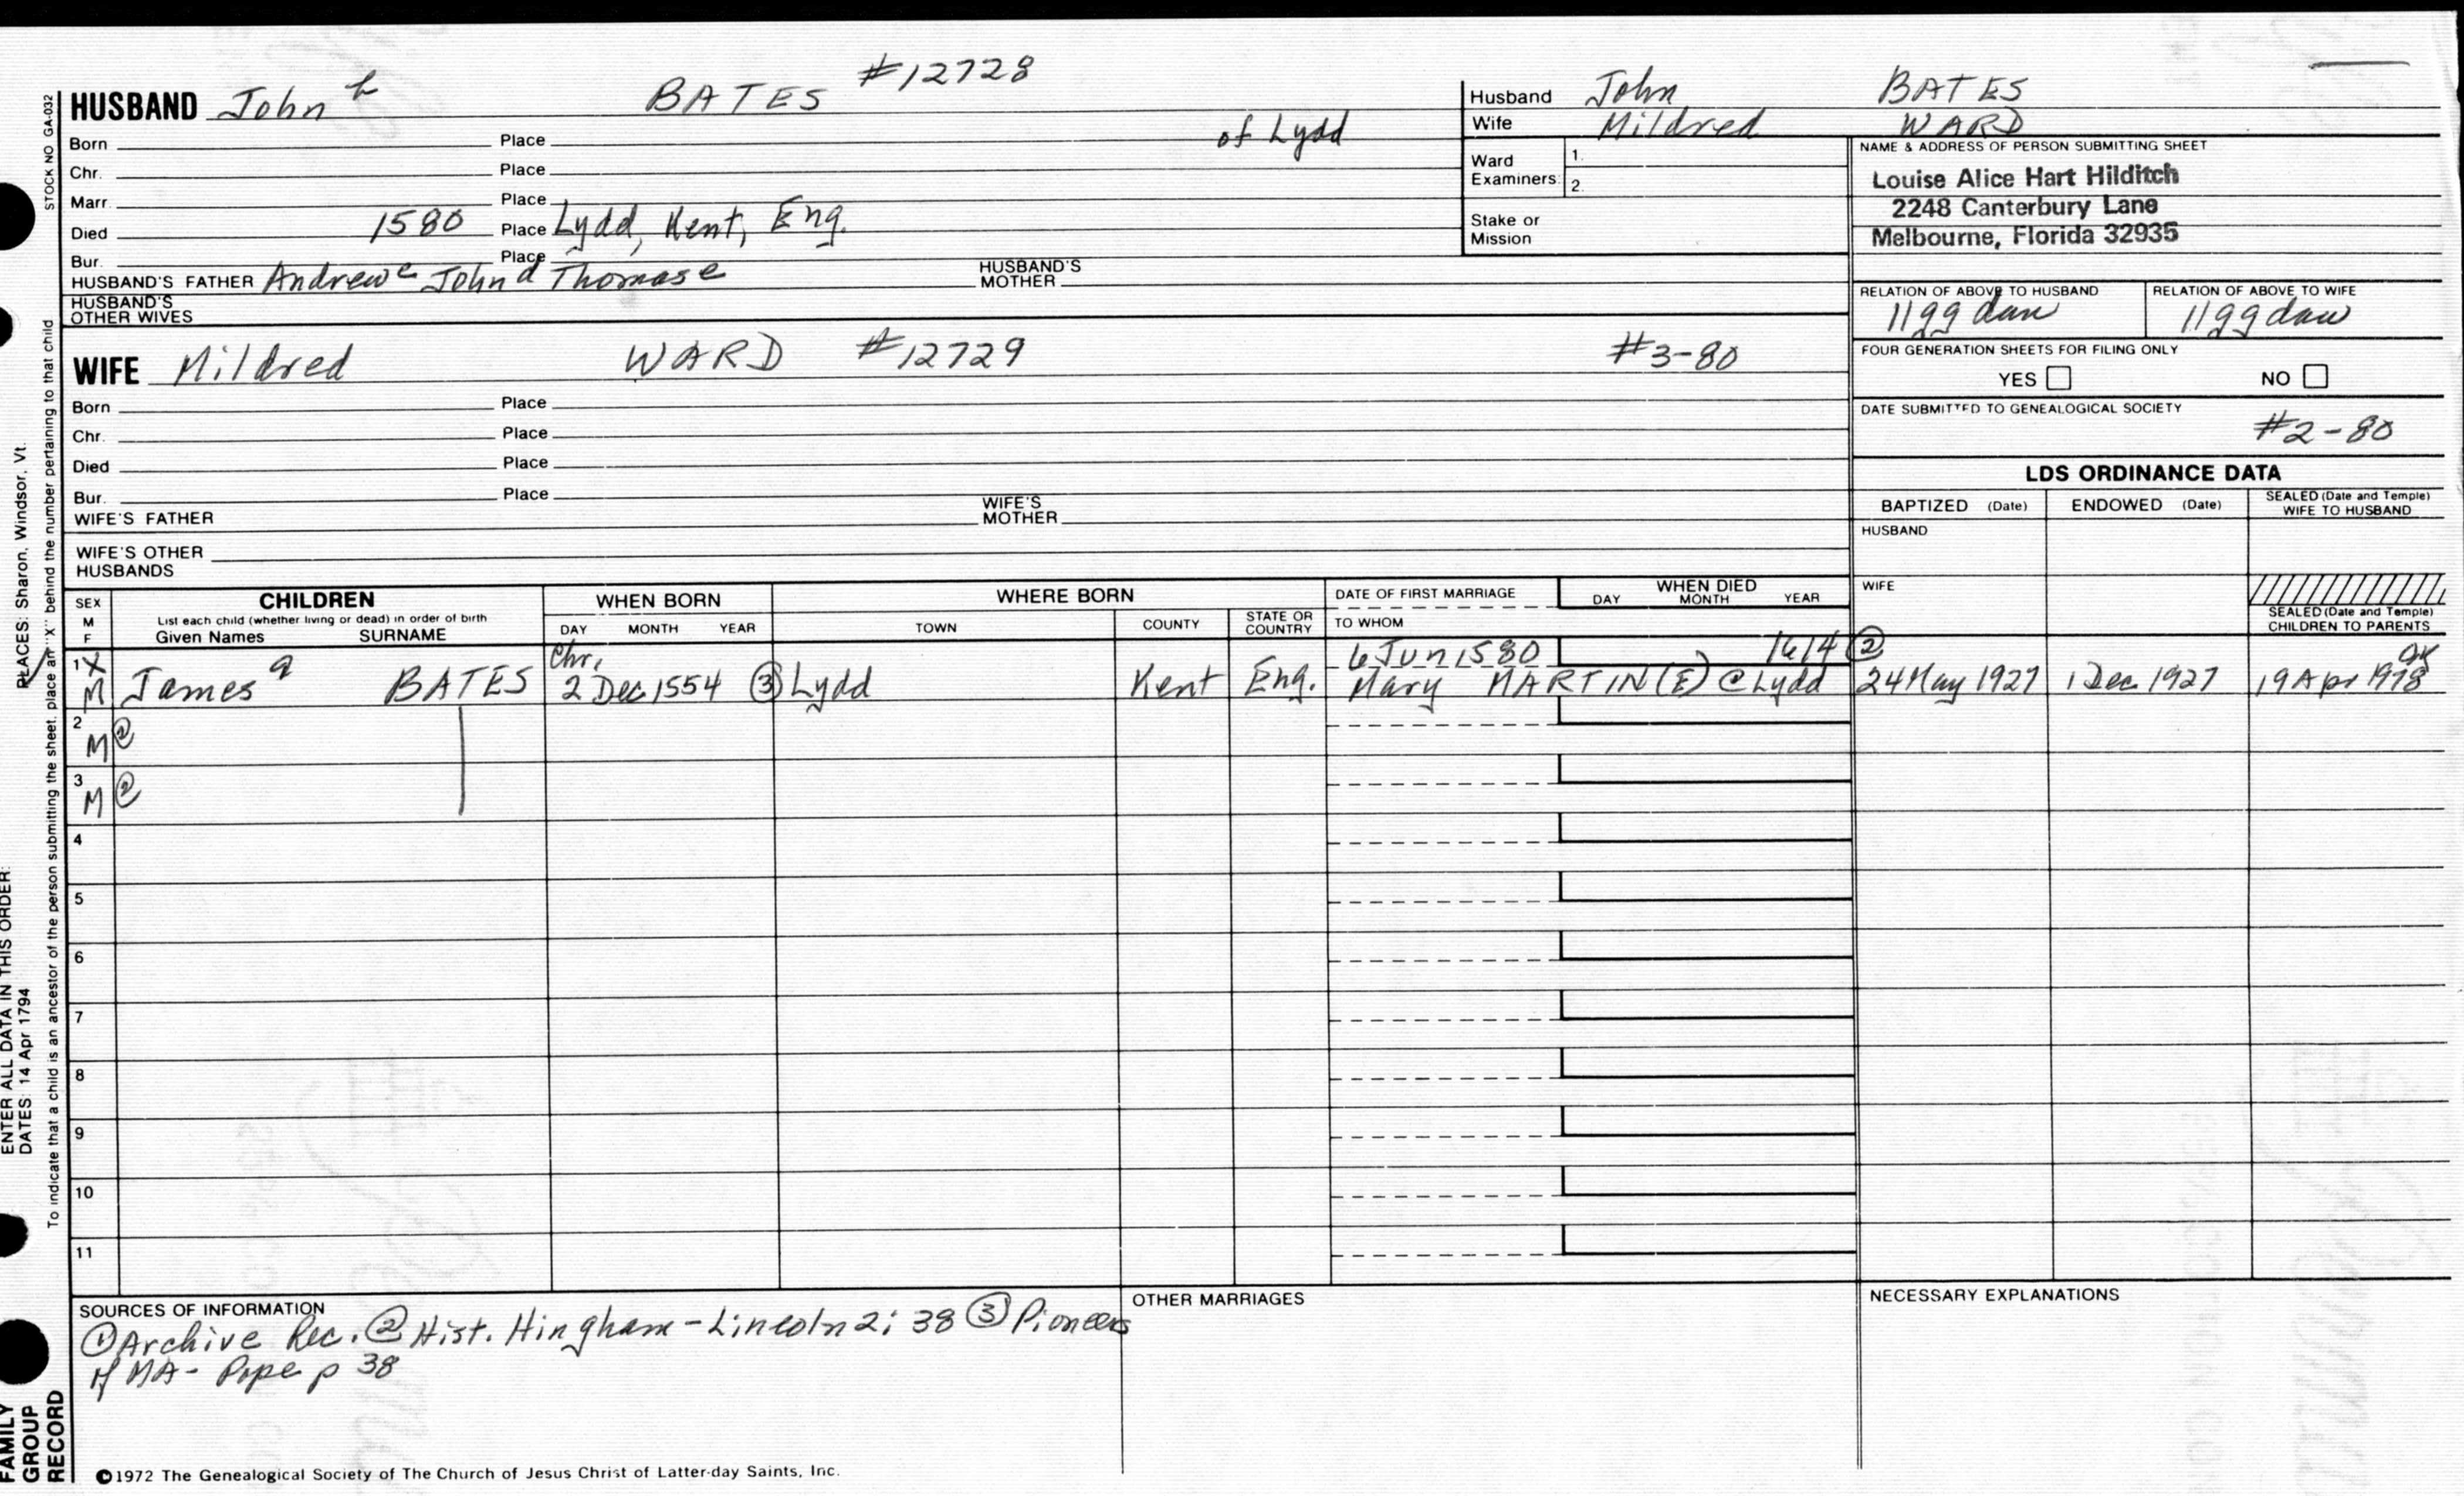 STOCK NO GA-032
HUSBAND John h BATES #12728
Born Place of Lydd
Chr. Place
Marr. Place
Died 1580 Place Lydd, Kent, Eng.
Bur. Place
HUSBAND'S FATHER Andrew c John d Thomas e HUSBAND'S MOTHER
HUSBAND'S OTHER WIVES
WIFE Mildred WARD #12729 #3-80
Born Place
Chr. Place
Died Place
Bur. Place
WIFE'S FATHER WIFE'S MOTHER
WIFE'S OTHER HUSBANDS
Husband John BATES
Wife Mildred WARD
Ward Examiners: 1.
2.
Stake or Mission
NAME & ADDRESS OF PERSON SUBMITTING SHEET
Louise Alice Hart Hilditch
2248 Canterbury Lane
Melbourne, Florida 32935
RELATION OF ABOVE TO HUSBAND RELATION OF ABOVE TO WIFE
11gg dau 11gg dau
FOUR GENERATION SHEETS FOR FILING ONLY
YES NO
DATE SUBMITTED TO GENEALOGICAL SOCIETY
#2-80
LDS ORDINANCE DATA
BAPTIZED (Date) ENDOWED (Date) SEALED (Date and Temple) WIFE TO HUSBAND
HUSBAND
WIFE
SEALED (Date and Temple) CHILDREN TO PARENTS
SEX M F
CHILDREN
List each child (whether living or dead) in order of birth
Given Names SURNAME
WHEN BORN
DAY MONTH YEAR
WHERE BORN
TOWN COUNTY STATE OR COUNTRY
DATE OF FIRST MARRIAGE
TO WHOM
WHEN DIED
DAY MONTH YEAR
1 X Chr. 6 Jun 1580 1614 ②
M James a BATES 2 Dec 1554 ③ Lydd Kent Eng. Mary MARTIN (E) @ Lydd 24 May 1927 1 Dec 1927 19 Apr 1978
2
M ②
3
M ②
4
5
6
7
8
9
10
11
SOURCES OF INFORMATION
① Archive Rec. ② Hist. Hingham-Lincoln 2: 38 ③ Pioneers
of MA- Pope p 38
OTHER MARRIAGES
NECESSARY EXPLANATIONS
©1972 The Genealogical Society of The Church of Jesus Christ of Latter-day Saints, Inc.
FAMILY GROUP RECORD
ENTER ALL DATA IN THIS ORDER:
DATES: 14 Apr 1794
PLACES: Sharon, Windsor, Vt.
To indicate that a child is an ancestor of the person submitting the sheet, place an "X" behind the number pertaining to that child